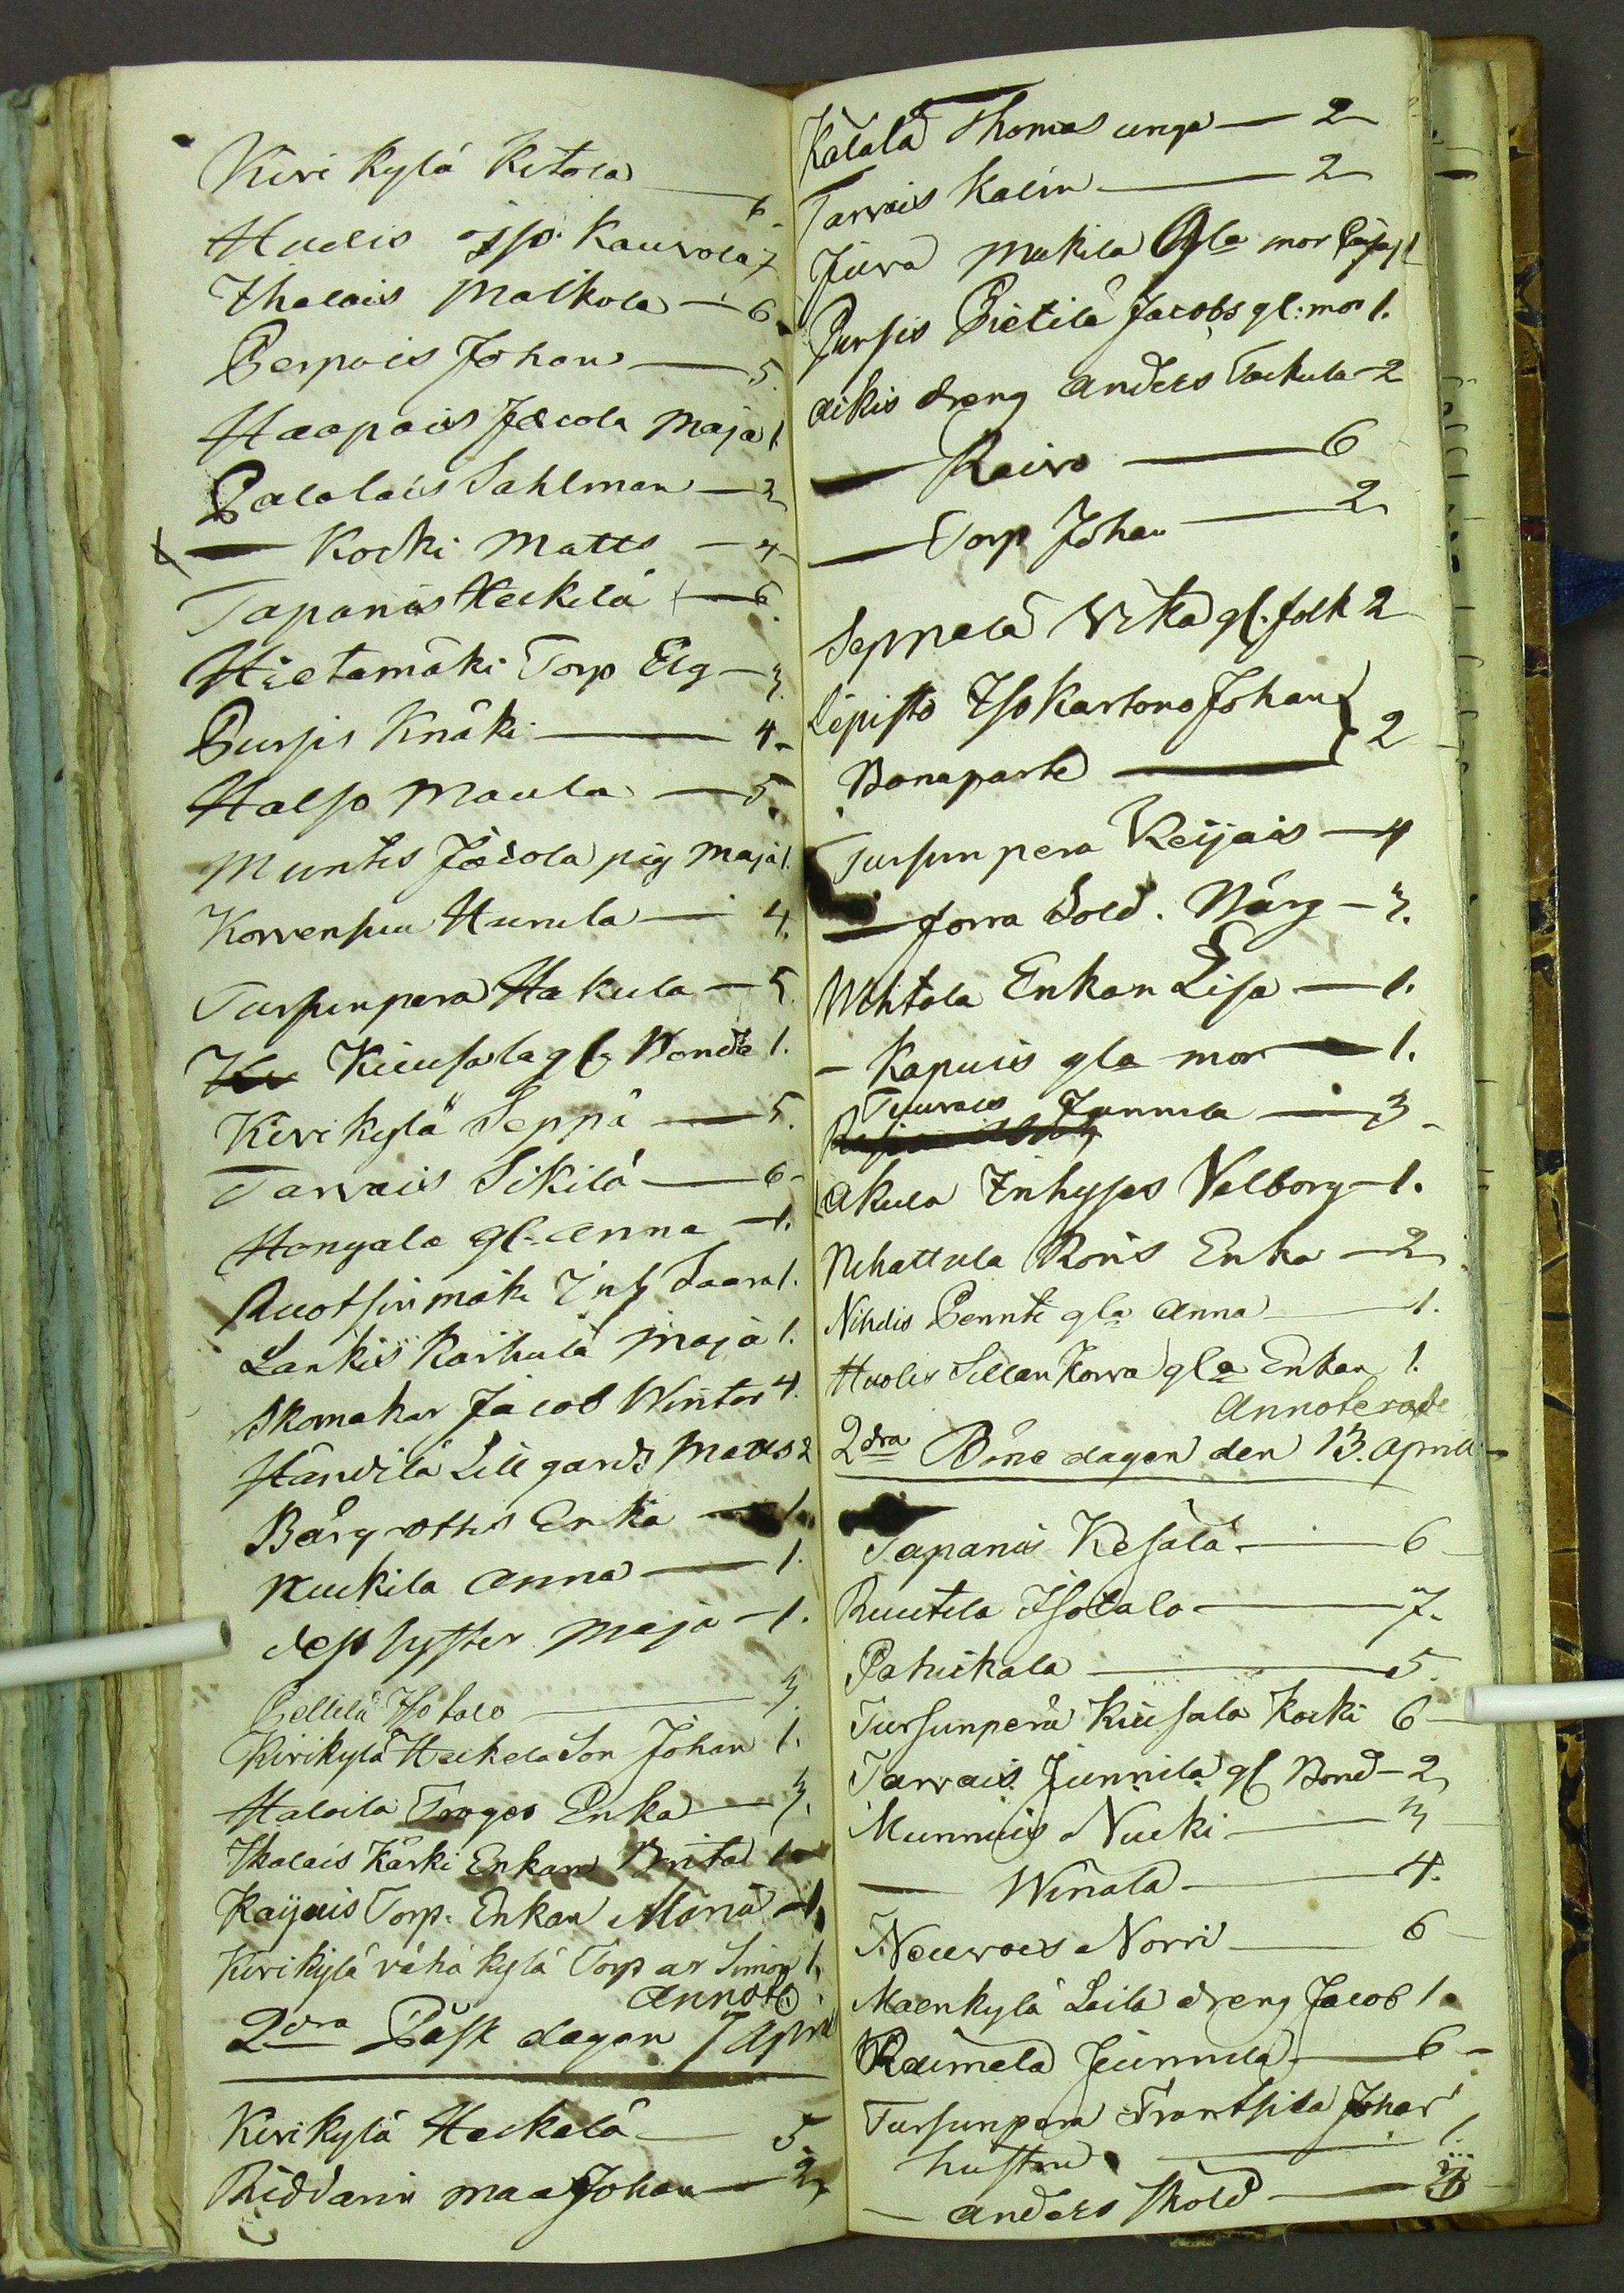 Kivi Kylä Kitola — 6
Huelis Isso Kauvola 7
Ihalais Matkola — 6
Perpois Johan — 5.
Haapois Jacola Maja 1
Palolais Sahlman — 2
— Kocki Matts — 4
Tapanis Heikilä — 6
Hietamäki Torp Elg — 3.
Pursis Knäki — 4
Halso Maula — 5.
Muntis Jacola pig Maja 1.
Korvenpuu Hurula — 4.
Tursunpera Hakula — 5.
Kiuusala gl. Bonde 1.
Kivikylä Seppä — 5.
Tarvais Sikilä — 6
Hongala gl. anna — 1.
Ruotsinmäki Inh Saara 1.
Lankis Karhula Maja 1.
Skomakar Jacob Winter 4.
Handilä Lill gards Matts 2
Bärg ottis Enka — 1
Nuckila anna — 1.
dess syster Maja — 1.
Pellilä Iso talo — 3.
Kivikylä Heikela Son Johan 1.
Haloila Troges Enka — 3.
Ihalais Kärki Enkan Brita 1
Kaijais Torp. Enkan Maria — 1.
Kivikylä vähä kylä Torp ar Simon 1.
annot.
2dra Påsk dagen 7 April
Kivikylä Heikelä — 5
Riddarin maa Johan — 2
Kälalä Thomas unga — 2
Tarvais Kalin — 2
Juva Mukila Gla mor 1
Pursis Pietilä Jacobs gl. mor 1.
aikis dreng anders Tackula — 2
— Raivo — 6
— Torp Johan — 2
Seppälä Vika gl. folk 2
Lepistö Iso Kartano Johan }
Bonaparte — } 2
Tursunpera Keijais — 4
— Jorra Sold. Närg — 3.
Wihtola Enkan Lisa — 1.
— Kapuis gla mor — 1.
Tuuvais Junnila — 3
akula Inhyses Valborg — 1.
Nihattula Roris Enka — 2
Nihelis Pentti gla anna — 1.
Huolis Sillan Korva gla Enkan 1.
Annoterade
2dra Böne dagen den 13. April
Tapanis Kesälä — 6
Ruutila Isotalo — 7.
Pahikala — 5.
Tursunperä Kiusala Kocki 6
Tarvais Junnila gl Bond — 2
Munnuis Nucki — 3
— Winala — 4.
Neuvois Norri — 6
Maenkylä Laila dreng Jacob 1.
Raimela Junnila — 6
Tursunpera Frantsila Johan
hustru — 1.
— anders Skold — 4